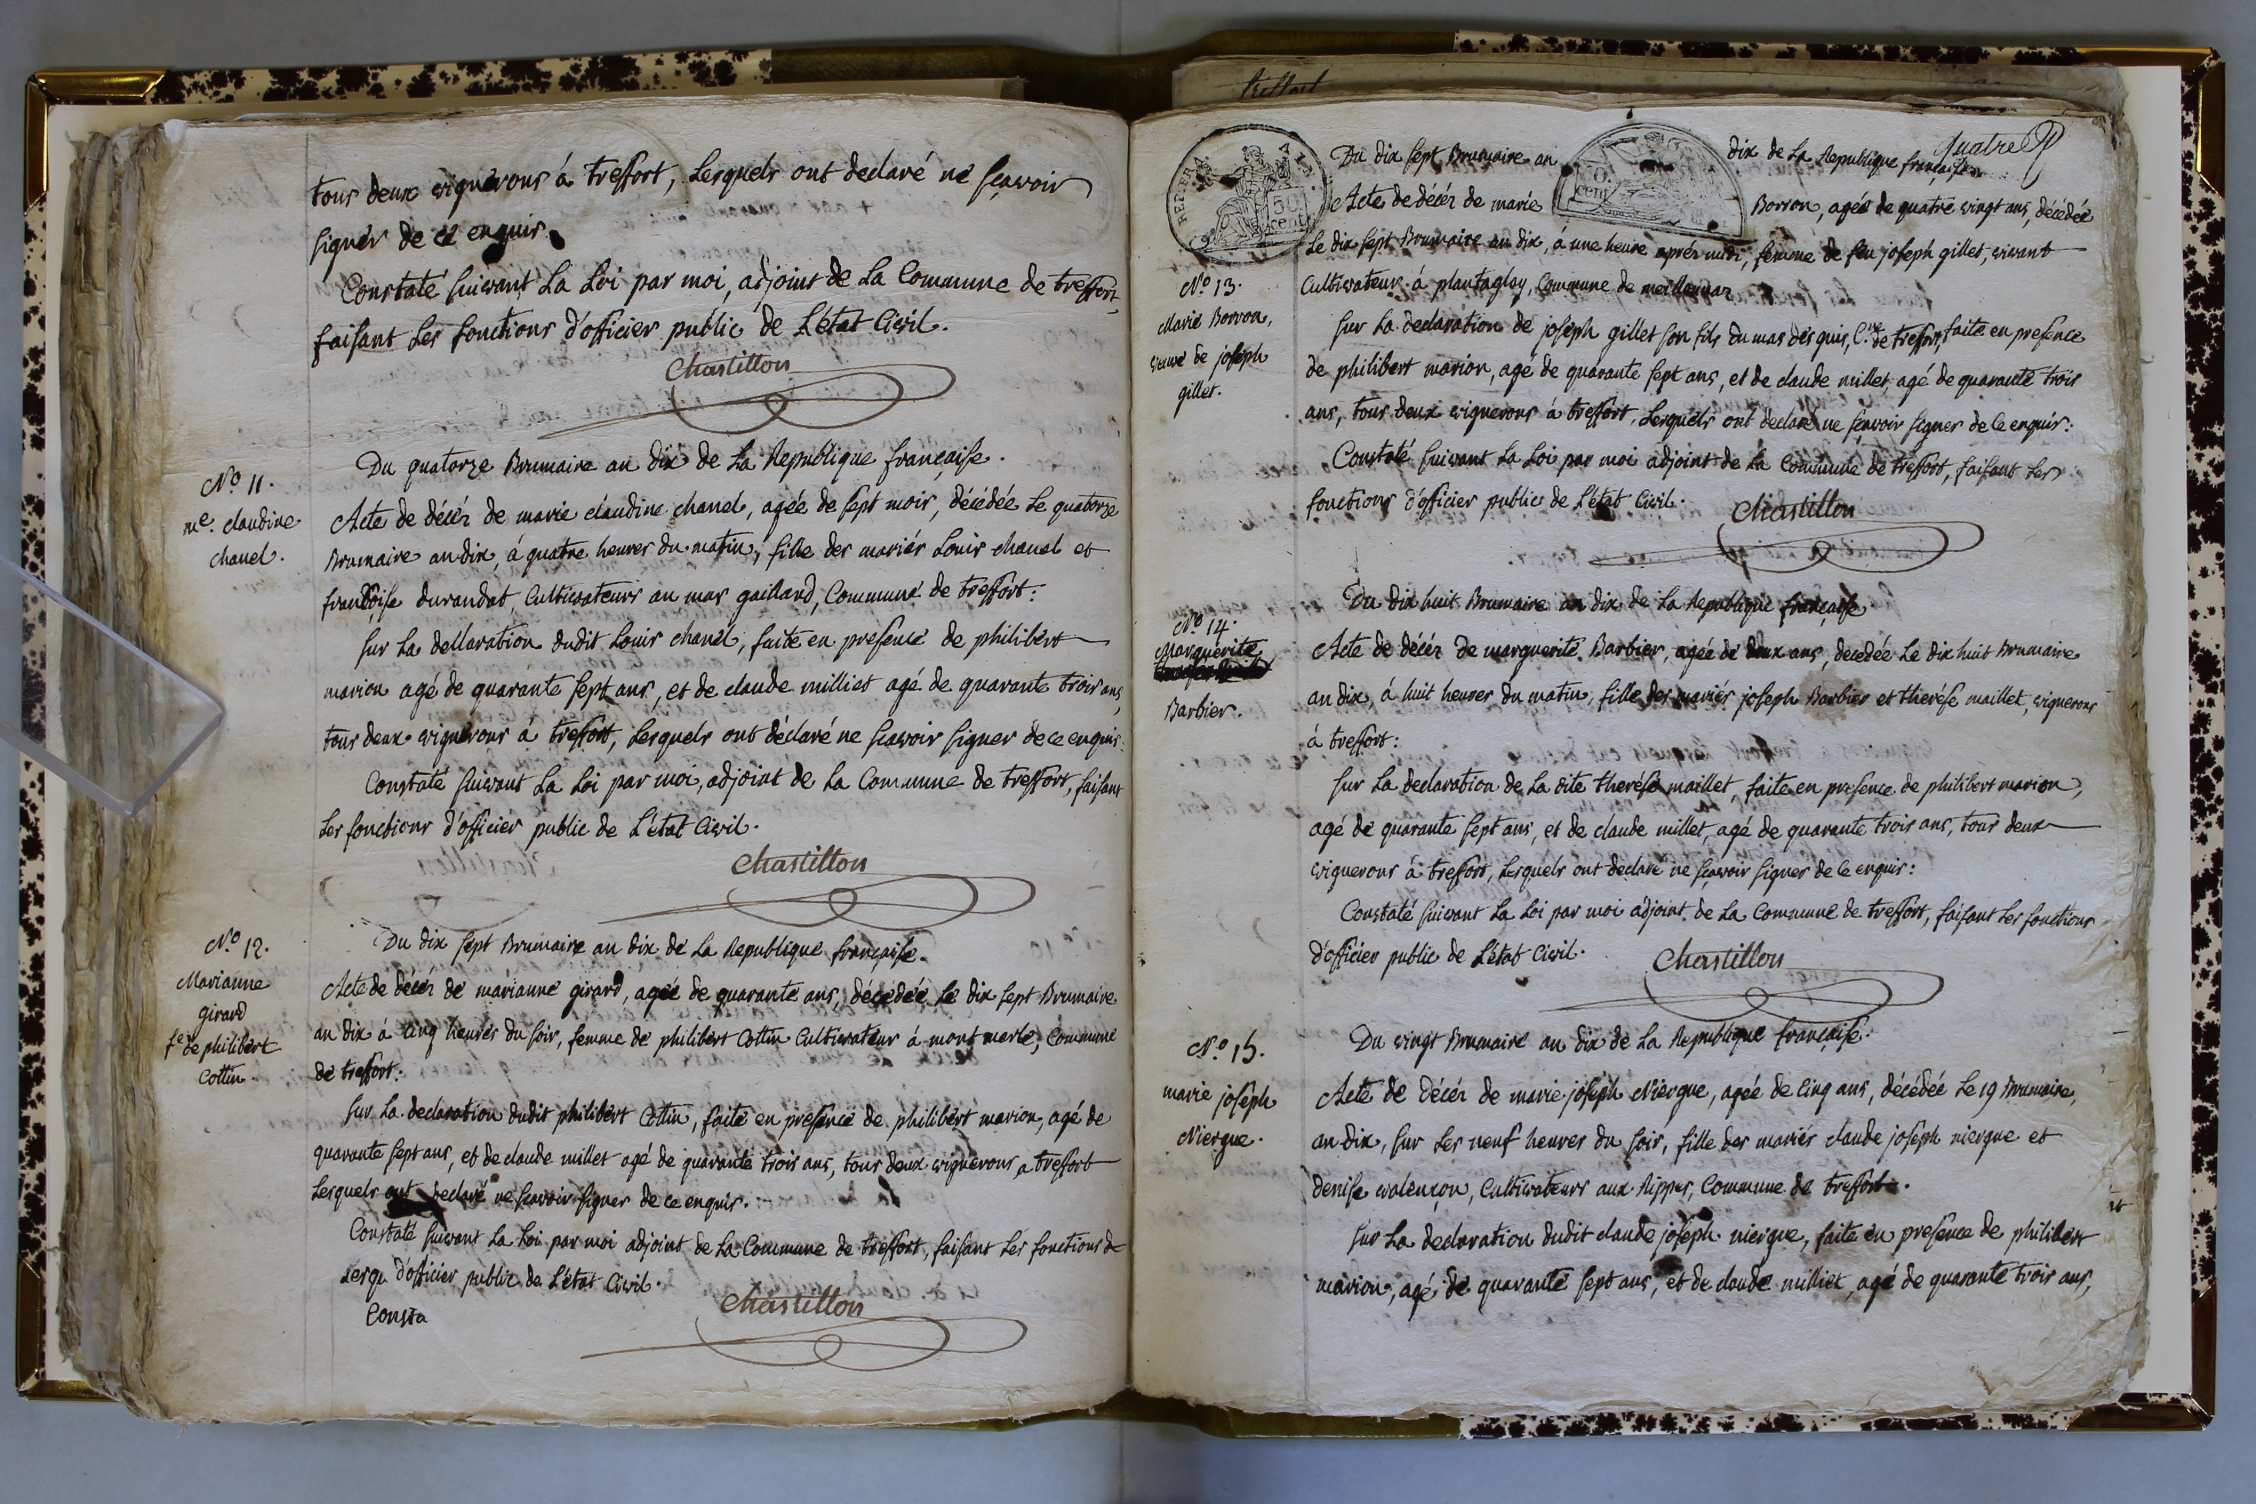 tous deux vignerons á treffort, Lesquels ont declaré ne sçavoir
signér de ce enquis.
Constaté suivant La Loi par moi, adjoint de La Commune de treffort,
faisant Les fonctions d'officier public de L'état Civil.
Chastillon
Du quatorze Brumaire an dix de La Republique française.
N.o 11.
m.e claudine
chanel.
Acte de décéz de marie claudine chanel, agée de sept mois, décédée Le quatorze
Brumaire an dix, á quatre heures du matin, fille des mariés Louis chanel et
françoise durandat, Cultivateurs au mas gaillard, Commune de treffort:
sur La dellaration dudit Louis chanel, faite en presence de philibert
marion agé de quarante sept ans, et de claude milliet agé de quarante trois ans,
tous deux vignerons á treffort, Lesquels ont déclaré ne sçavoir signer de ce enquis.
Constaté suivant La Loi par moi, adjoint de La Commune de treffort, faisant
Les fonctions d'officier public de L'état Civil.
Chastillon
N.o 12.
Marianne
girard
f.e de philibert
Cottin.
Du dix sept Brumaire an dix de La Republique française.
Acte de décéz de marianne girard, agée de quarante ans, décédée Le dix sept Brumaire
an dix á cinq heures du soir, femme de philibert Cottin Cultivateur á mont merle, Commune
de treffort:
sur La declaration dudit philibert Cottin, faite en presence de philibert marion, agé de
quarante sept ans, et de claude millet agé de quarante trois ans, tous deux vignerons a treffort
Lesquels ont declaré ne sçavoir signer de ce enquis.
Constaté suivant La Loi par moi adjoint de La Commune de treffort, faisant Les fonctions de
Lesqu d'officier public de L'état Civil.
Consta
Chastillon
treffort
quatre
REP. FRA.
50
cent
50
cent
Du dix sept Brumaire an dix de La Republique française
Acte de décéz de marie Borron, agée de quatre vingt ans, décédée
Le dix sept Brumaire an dix, á une heure aprés midi, femme de feu joseph gillet, vivant
Cultivateur á plantaglay, Commune de meillonnaz
N.o 13.
Marie Borron,
veuve de joseph
gillet.
sur La declaration de joseph gillet son fils du mas des quis, C.ne de treffort, faite en presence
de philibert marion, agé de quarante sept ans, et de claude millet, agé de quarante trois
ans, tous deux vignerons á treffort, Lesquels ont declaré ne sçavoir signer de Ce enquis:
Constaté suivant La Loi par moi adjoint de La Commune de treffort, faisant Les
fonctions d'officier public de L'état Civil.
Chastillon
Du dix huit Brumaire an dix de La Republique française
N.o 14.
Marguerite
Barbier.
Acte de décéz de marguerite Barbier, agée de deux ans, decedée Le dix huit Brumaire
an dix, á huit heures du matin, fille des mariés joseph Barbier et therése maillet, vignerons
á treffort:
sur La declaration de La dite therése maillet, faite en presence de philibert marion,
agé de quarante sept ans, et de claude millet, agé de quarante trois ans, tous deux
vignerons á treffort, Lesquels ont declaré ne sçavoir signer de Ce enquis:
Constaté suivant La Loi par moi adjoint de La Commune de treffort, faisant Les fonctions
d'officier public de L'état Civil.
Chastillon
Du vingt Brumaire an dix de La Republique française.
N.o 15.
marie joseph
Niergue.
Acte de décéz de marie joseph Niergue, agée de Cinq ans, décédée Le 19 Brumaire,
an dix, sur Les neuf heures du soir, fille des mariés claude joseph niergue et
denise valençon, Cultivateurs aux Rippes, Commune de treffort.
sur La declaration dudit claude joseph niergue, faite en presence de philibert
marion, agé de quarante sept ans, et de claude milliet, agé de quarante trois ans,